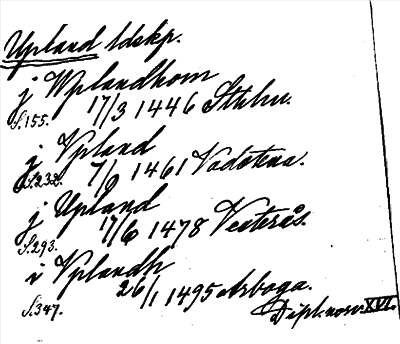 Upland ldskp.
j Wplandhom
S.155. 17/3 1446 Sthlm.
j Vpland
S.238. 7/9 1461 Vadstena.
j Upland
S.293. 17/6 1478 Vesterås.
i Vplandh
S.347. 26/1 1495 Arboga.
Dipl. norv. XVI.